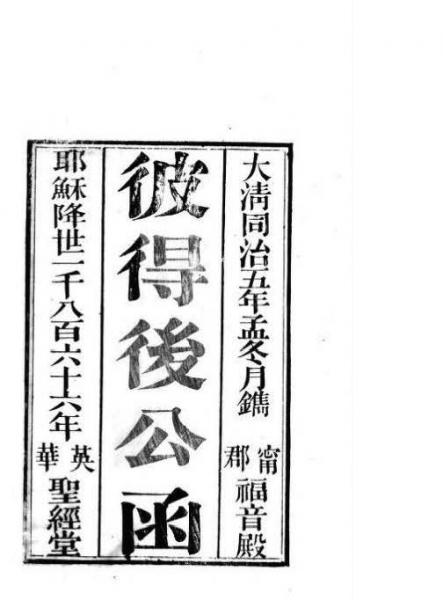 大清同治五年孟冬月鐫
甯郡福音殿
彼得後公函
耶穌降世一千八百六十六年
英華聖經堂